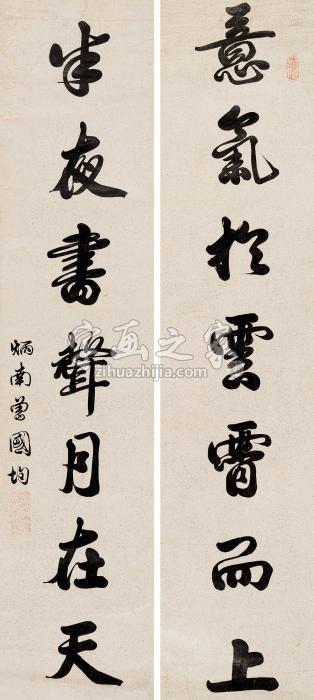 意氣於雲霄而上
半夜書聲月在天
炳南曾國均
字画之家
zihuazhijia.com